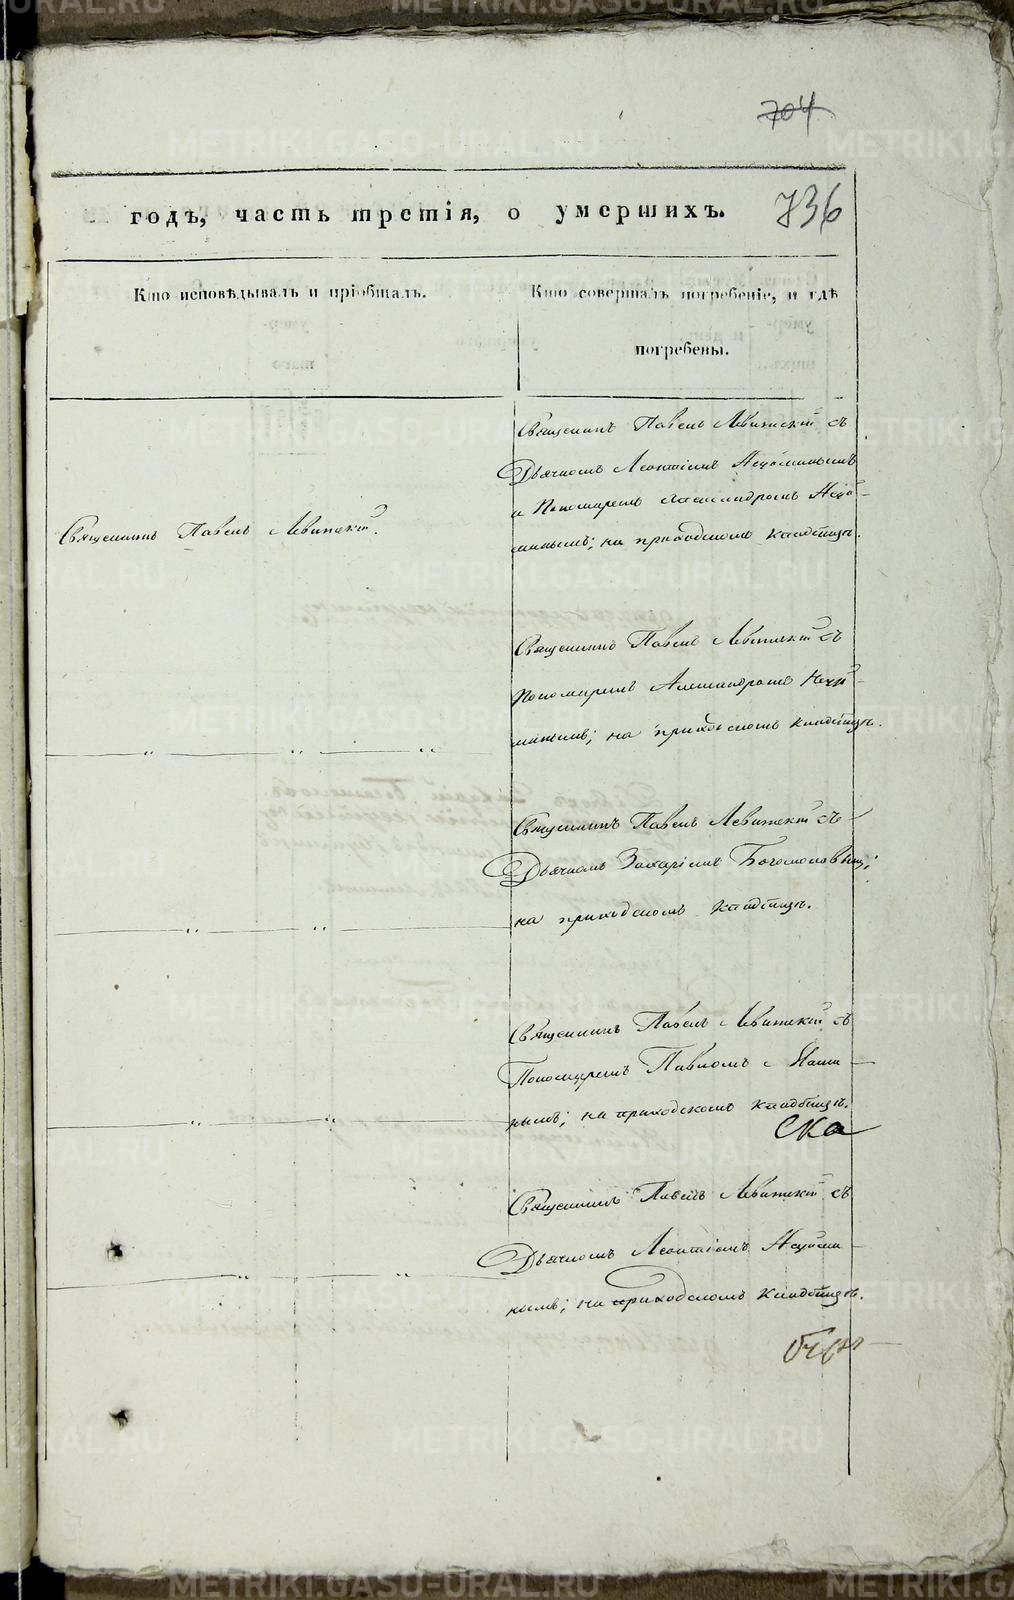 704
736
годъ, часть третія, о умершихъ.
Кто исповѣдывалъ и пріобщалъ.
Кто совершалъ погребеніе, и гдѣ
погребены.
Священникъ Павелъ Левитскій.
Священникъ Павелъ Левитскій съ
Дьячкомъ Леонтіемъ
и Пономаремъ Александромъ
на приходскомъ кладбищѣ.
Священникъ Павелъ Левитскій съ
Пономаремъ Александромъ
на приходскомъ кладбищѣ.
Священникъ Павелъ Левитскій съ
Дьячкомъ Захаріемъ Богомоловымъ;
на приходскомъ кладбищѣ.
Священникъ Павелъ Левитскій съ
Пономаремъ Павломъ
нымъ; на приходскомъ кладбищѣ.
Священникъ Павелъ Левитскій съ
Дьячкомъ Леонтіемъ
нымъ; на приходскомъ кладбищѣ.
METRIKI.GASO-URAL.RU